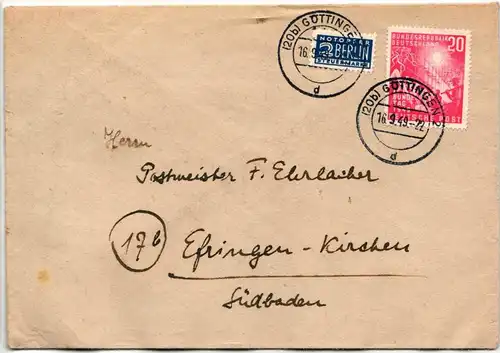 (20b) GÖTTINGEN
16.9.
d
NOTOPFER
2 BERLIN
STEUERMARKE
BUNDESREPUBLIK
DEUTSCHLAND
20
(20b) GÖTTINGEN 2
16.9.49.-22
d
POST
Herrn
Postmeister F. Ehrlacher
17b
Efringen-Kirchen
Südbaden